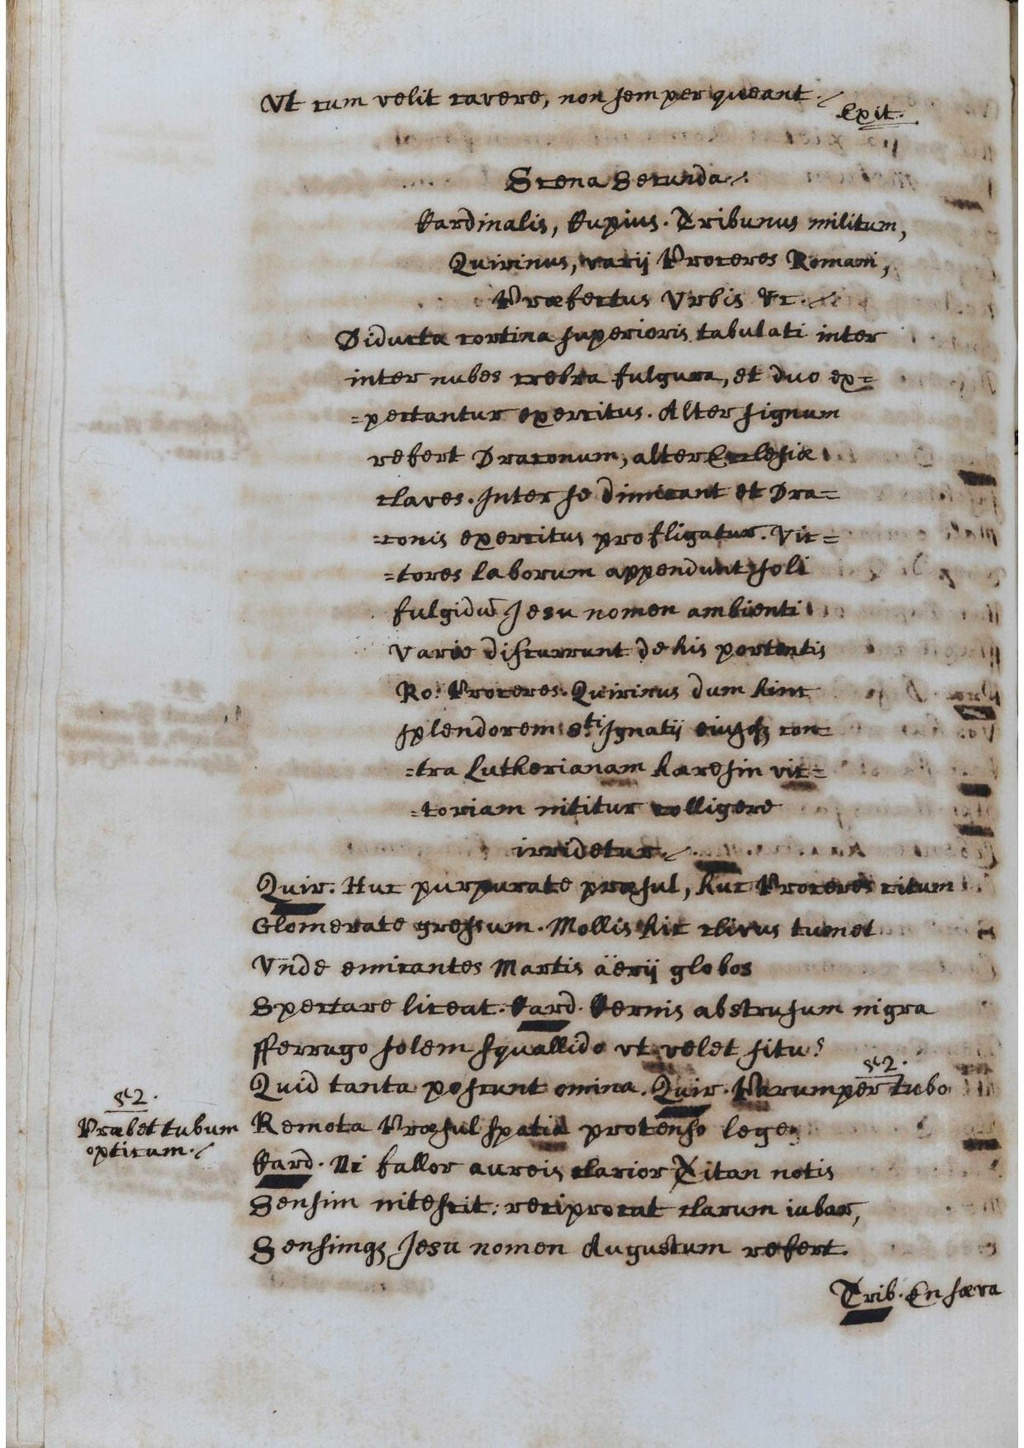 Vt cum velit cavere, non semper queant.
Exit.
Scena Secunda.
Cardinalis, Cupius. Tribunus militum,
Quirinus, varij Proceres Romani,
Præfectus Vrbis &c.
Diducta cortina superioris tabulati inter
inter nubes crebra fulgura, et duo ex=
=pectantur exercitus. Alter signum
refert Draconum, alter Ecclesiæ
claves. Inter se dimicant et Dra=
=conis exercitus profligatur. Vic=
=tores laborum appendunt soli
fulgidũ Jesu nomen ambienti
Varie discurrunt de his portentis
Ro: Proceres. Quirinus dum hinc
splendorem Sti Ignatij eiusqꝫ con=
=tra Lutherianam hæresin vic=
=toriam nititur colligere
irridetur.
Quir. Huc purpurate præsul, huc Proceres citum
Glomerate gressum. Mollis hic clivus tumet
Vnde emicantes Martis aërij globos
Spectare liceat. Card. Cernis abstrusum nigra
fferrugo solem squallido vt velet situ?
sc 2.
Quid tanta poscunt omina. Quir. Parumper tubo
sc 2.
Præbet tubum
opticum.
Remota Præsul spatia protenso lege
Card. Ni fallor aureis clarior Titan notis
Sensim nitescit: reciprocat clarum iubar,
Sensimqꝫ Jesu nomen Augustum refert.
Trib. En sæva